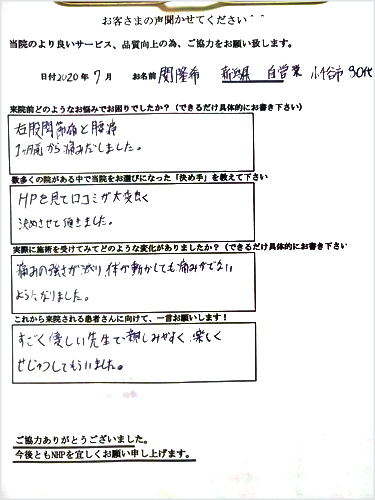 お客さまの声聞かせてください＾＾
当院のより良いサービス、品質向上の為、ご協力をお願い致します。
日付2020年7月 お名前 関隆希 新潟県 自営業 小千谷市 30代
来院前どのようなお悩みでお困りでしたか？（できるだけ具体的にお書き下さい）
左股関節痛と腰痛
1ヶ月前から痛みだしました。
数多くの院がある中で当院をお選びになった「決め手」を教えて下さい
HPを見て口コミが大変良く
決めさせて頂きました。
実際に施術を受けてみてどのような変化がありましたか？（できるだけ具体的にお書き下さい
痛みの強さが減り、体が動かしても痛みがでない
ようになりました。
これから来院される患者さんに向けて、一言お願いします！
すごく優しい先生で親しみやすく、楽しく
せじゅつしてもらいました。
ご協力ありがとうございました。
今後ともNHPを宜しくお願い申し上げます。